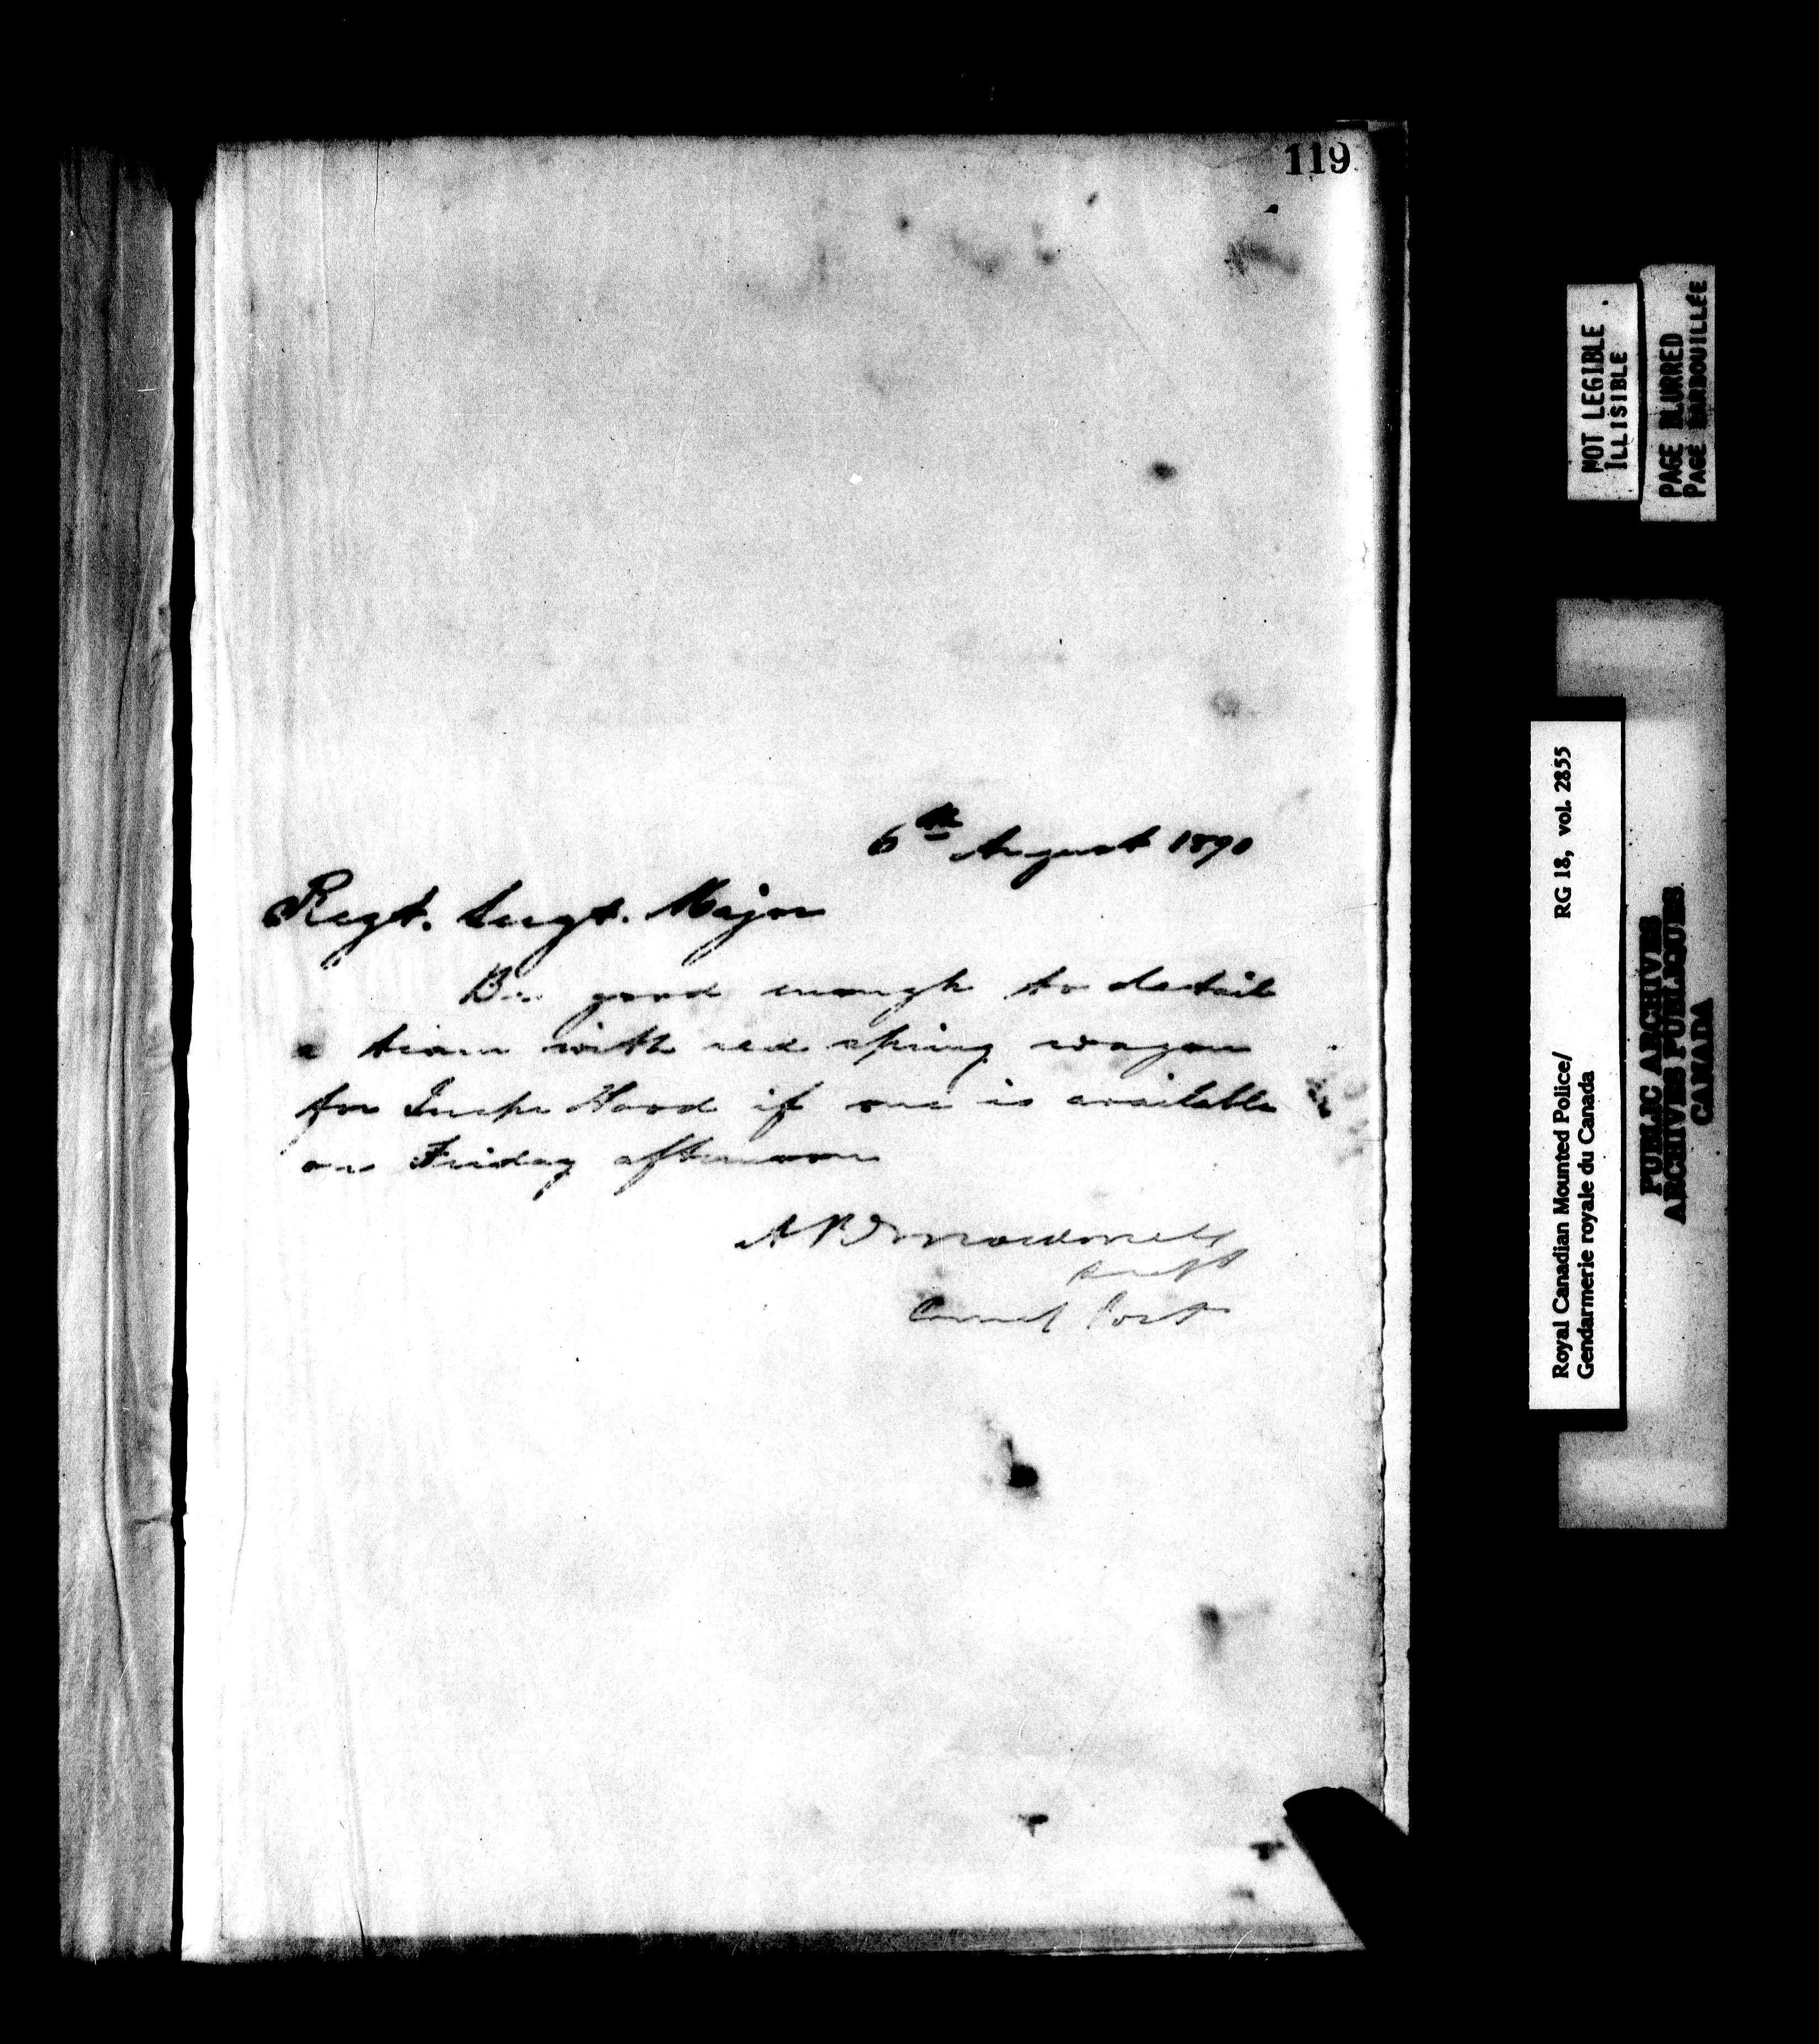 119
6th August 1890
Regt. Sergt. Major
Be good enough to detail
a team with red spring wagon
for Inspr Hood if one is available
on Friday afternoon
Supt
Comd Post
NOT LEGIBLE
ILLISIBLE
PAGE BLURRED
PAGE BARBOUILLÉE
Royal Canadian Mounted Police/ RG 18, vol. 2855
Gendarmerie royale du Canada
PUBLIC ARCHIVES
ARCHIVES PUBLIQUES
CANADA